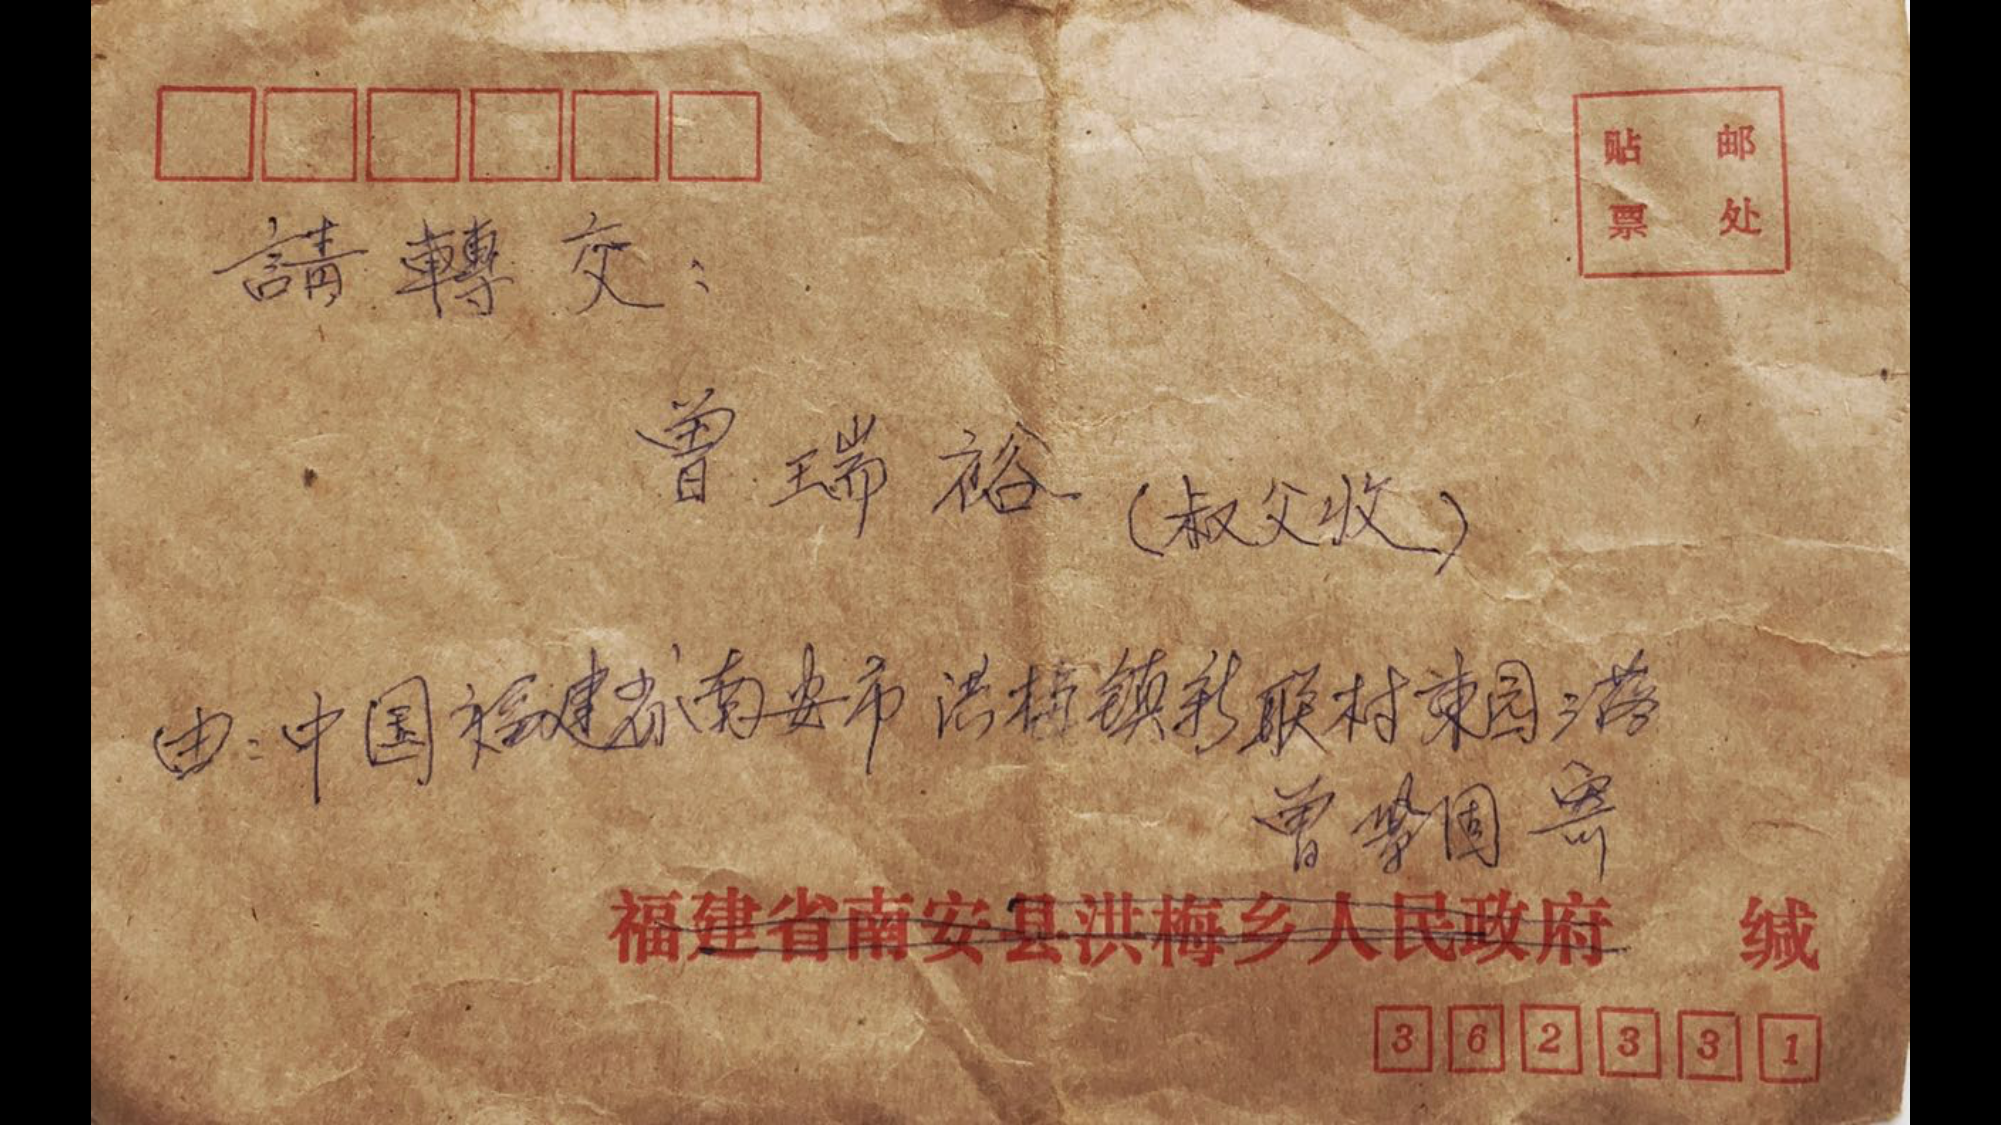 贴 邮
票 处
請轉交:
曾瑞裕(叔父收)
由:中国福建省南安市洪梅镇新联村東园
曾 固寄
福建省南安县洪梅乡人民政府 缄
362331